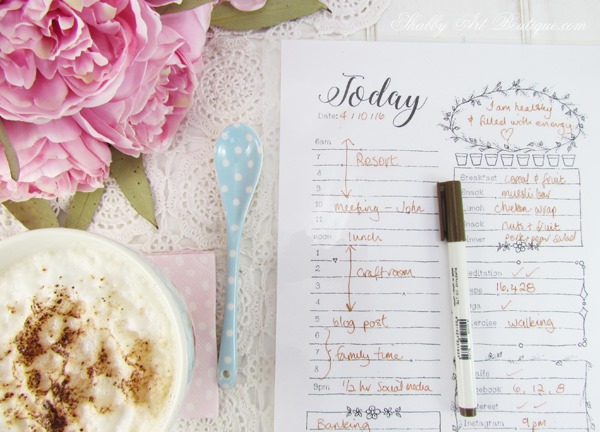 Shabby Art Boutique.com
Today
Date: 4 / 10 / 16
I am healthy
& filled with energy
6am
7 Resort
8
9
10 meeting - John
11
noon lunch
1
2 craft room
3
4
5 blog post
6
7 family time
8
9pm 1/2 hr social media
Banking
Breakfast cereal & fruit
Snack muesli bar
Lunch chicken wrap
Snack nuts & fruit
Dinner pork & pear salad
Meditation
16,428
Exercise walking
6, 12, 8
Instagram 9pm